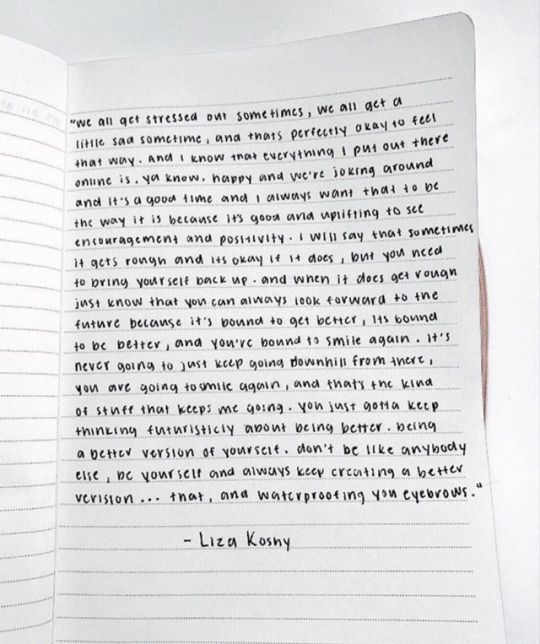 "we all get stressed out sometimes, we all get a
little sad sometime, and thats perfectly okay to feel
that way. And I know that everything I put out there
online is. ya know. happy and we're joking around
and it's a good time and I always want that to be
the way it is because it's good and uplifting to see
encouragement and positivity. I will say that sometimes
it gets rough and its okay if it does, but you need
to bring yourself back up. and when it does get rough
just know that you can always look forward to the
future because it's bound to get better, its bound
to be better, and you're bound to smile again. It's
never going to just keep going downhill from there,
you are going to smile again, and that's the kind
of stuff that keeps me going. you just gotta keep
thinking futuristicly about being better. being
a better version of yourself. don't be like anybody
else, be yourself and always keep creating a better
verision... that, and waterproofing you eyebrows."
- Liza Koshy